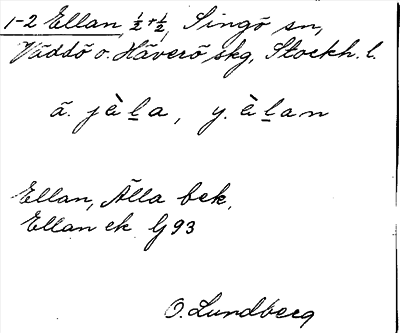 1-2 Ellan, ½+½, Singö sn,
Väddö o. Häverö skg, Stockh. l.
ä. jὲḻa, y. ὲḻan
Ellan, Älla bek,
Ellan ek G 93
O. Lundberg